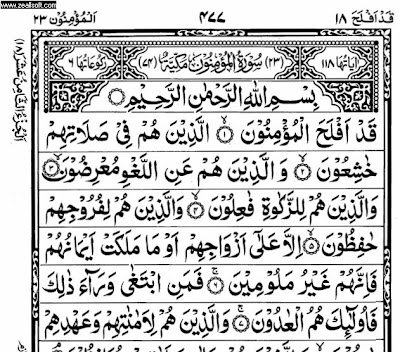 www.zealisoft.com
قد افلح ١٨
٤٧٧
المؤمنون ٢٣
اٰیاتها ١١٨
(٢٣) سُوْرَةُ الْمُؤْمِنُوْنَ مَکِّیَّةٌ (٧٤)
رکوعاتها ٦
بِسْمِ اللّٰهِ الرَّحْمٰنِ الرَّحِیْمِ
قَدْ اَفْلَحَ الْمُؤْمِنُوْنَ ١ الَّذِیْنَ هُمْ فِیْ صَلَاتِهِمْ
خٰشِعُوْنَ ٢ وَ الَّذِیْنَ هُمْ عَنِ اللَّغْوِ مُعْرِضُوْنَ ٣
وَالَّذِیْنَ هُمْ لِلزَّکٰوةِ فٰعِلُوْنَ ٤ وَالَّذِیْنَ هُمْ لِفُرُوْجِهِمْ
حٰفِظُوْنَ ٥ اِلَّا عَلٰۤی اَزْوَاجِهِمْ اَوْ مَا مَلَکَتْ اَیْمَانُهُمْ
فَاِنَّهُمْ غَیْرُ مَلُوْمِیْنَ ٦ فَمَنِ ابْتَغٰی وَرَآءَ ذٰلِكَ
فَاُولٰٓئِكَ هُمُ الْعٰدُوْنَ ٧ وَالَّذِیْنَ هُمْ لِاَمٰنٰتِهِمْ وَعَهْدِهِمْ